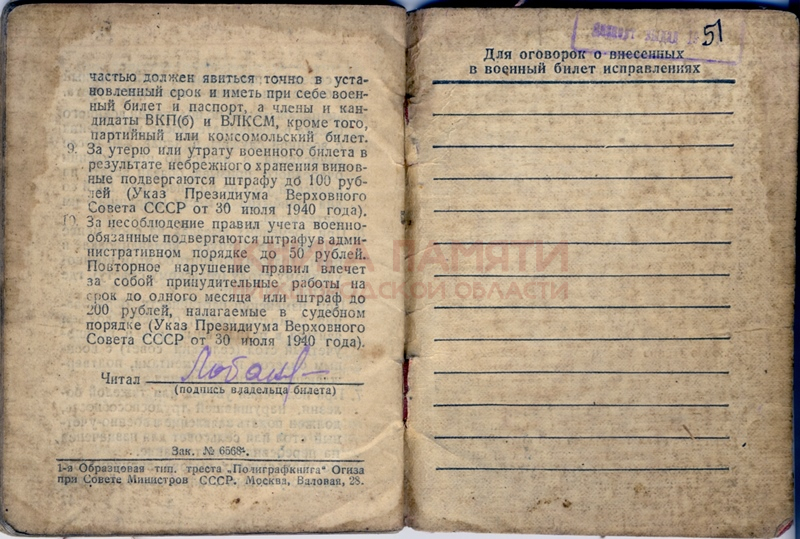 частью должен явиться точно в уста-
новленный срок и иметь при себе воен-
ный билет и паспорт, а члены и кан-
дидаты ВКП(б) и ВЛКСМ, кроме того,
партийный или комсомольский билет.
9. За утерю или утрату военного билета в
результате небрежного хранения винов-
ные подвергаются штрафу до 100 руб-
лей (Указ Президиума Верховного
Совета СССР от 30 июля 1940 года).
10. За несоблюдение правил учета военно-
обязанные подвергаются штрафу в адми-
нистративном порядке до 50 рублей.
Повторное нарушение правил влечет
за собой принудительные работы на
срок до одного месяца или штраф до
200 рублей, налагаемые в судебном
порядке (Указ Президиума Верховного
Совета СССР от 30 июля 1940 года).
Читал
(подпись владельца билета)
Зак. № 6568
1-я Образцовая тип. треста „Полиграфкнига“ Огиза
при Совете Министров СССР. Москва, Валовая, 28.
51
Для оговорок о внесенных
в военный билет исправлениях
КНИГА ПАМЯТИ
ОБЛАСТИ